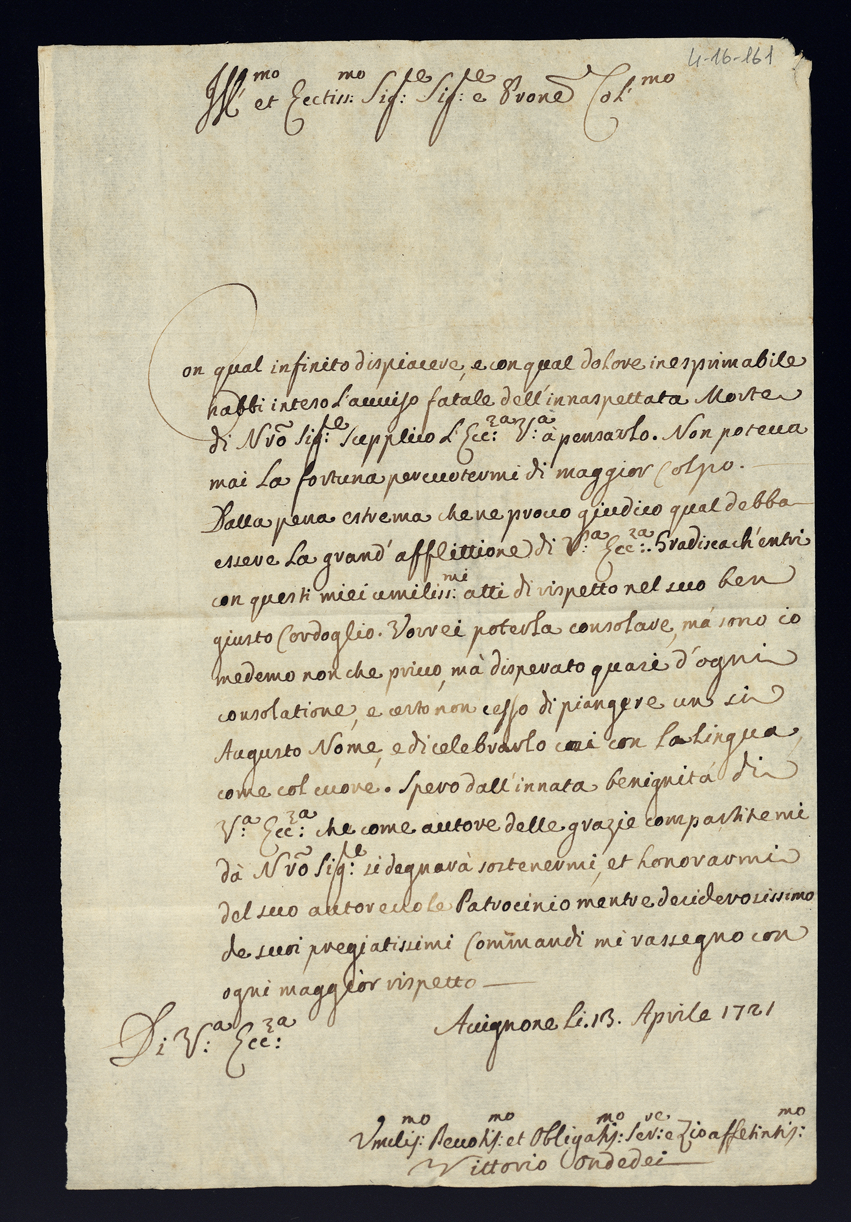 4-16-161
Ill.mo et Ecctiss:mo Sig:re Sig:re e Prone Col.mo
Con qual infinito dispiacere, e con qual dolore inesprimabile
habbi inteso l'auuiso fatale dell'innaspettata Morte
di Nrõ Sig:re scupplico l'Ecc:za V:a à pensarlo. Non poteua
mai La fortuna percuotermi di maggior Colpo.
Dalla pena estrema che ne prouo giudico qual debba
essere La grand'afflittione di V:a Ecc:za. Gradisca ch'entri
con questi miei umiliss:mi atti di rispetto nel suo ben
giusto Cordoglio. Vorrei poterla consolare, mà sono io
medemo non che priuo, mà disperato quasi d'ogni
consolatione, e certo non cesso di piangere un si
Augusto Nome, e di celebrarlo con La Lingua,
come col cuore. Spero dall'innata benignità di
V:a Ecc:za che come autore delle grazie compartitemi
dà Nrõ Sig:re si degnarà sostenermi, et honorarmi
del suo autoreuole Patrocinio mentre deciderosissimo
de suoi pregiatissimi Commandi mi rassegno con
ogni maggior rispetto
Di V:a Ecc:za
Auignone Li. 13. Aprile 1721
Vmilis:mo Deuotis:mo et Obligatis:mo Ser:re e Zio affetintis:mo
Vittorio Ondedei